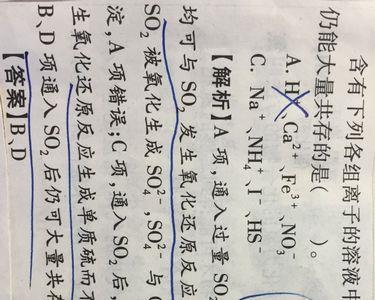 含有下列各组离子的溶液中
仍能大量共存的是(　　)。
A. H⁺、Ca²⁺、Fe³⁺、NO₃⁻
C. Na⁺、NH₄⁺、I⁻、HS⁻
【解析】A项,通入过量SO₂
均可与SO₂发生氧化还原反应
SO₂被氧化生成SO₄²⁻,SO₄²⁻与
淀,A项错误;C项,通入SO₂后,
生氧化还原反应生成单质硫而不
B、D项通入SO₂后仍可大量共存
【答案】B、D